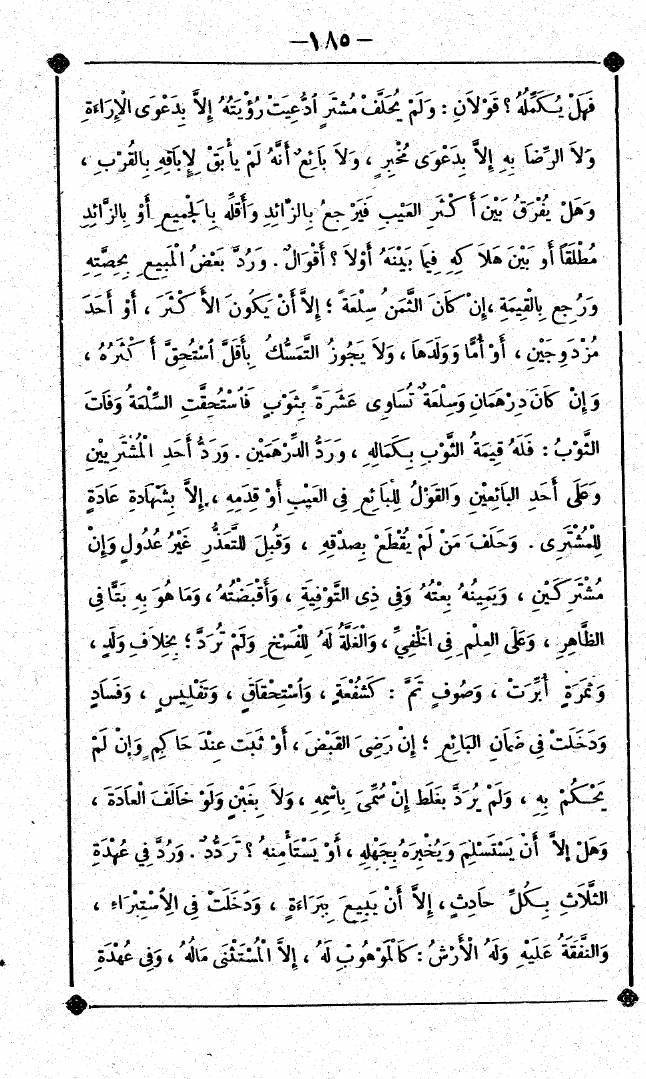 –١٨٥–
فَهَلْ يُكَمِّلُهُ؟ قَوْلَانِ: وَلَمْ يُحَلَّفْ مُشْتَرٍ ادُّعِيَتْ رُؤْيَتُهُ إِلَّا بِدَعْوَى الْإِرَاءَةِ
وَلَا الرِّضَا بِهِ إِلَّا بِدَعْوَى مُخْبِرٍ، وَلَا بَائِعٌ أَنَّهُ لَمْ يَأْبَقْ لِإِبَاقِهِ بِالْقُرْبِ،
وَهَلْ يُفْرَقُ بَيْنَ أَكْثَرِ العَيْبِ فَيَرْجِعُ بِالزَّائِدِ وَأَقَلِّهِ بِالْجَمِيعِ أَوْ بِالزَّائِدِ
مُطْلَقًا أَو بَيْنَ هَلَاكِهِ فِيمَا بَيْنَهُ أَوْلَا؟ أَقْوَالٌ. وَرُدَّ بَعْضُ الْمَبِيعِ بِحِصَّتِهِ
وَرُجِعَ بِالْقِيمَةِ، إِنْ كَانَ الثَّمَنُ سِلْعَةً؛ إِلَّا أَنْ يَكُونَ الأَكْثَرَ، أَوْ أَحَدَ
مُزْدَوِجَيْنِ، أَوْ أُمًّا وَوَلَدَهَا، وَلَا يَجُوزُ التَّمَسُّكُ بِأَقَلَّ اسْتُحِقَّ أَكْثَرُهُ،
وَإِنْ كَانَ دِرْهَمَانِ وَسِلْعَةٌ تُسَاوِى عَشَرَةً بِثَوْبٍ فَاسْتُحِقَّتِ السِّلْعَةُ وَفَاتَ
الثَّوْبُ: فَلَهُ قِيمَةُ الثَّوْبِ بِكَمَالِهِ، وَرَدُّ الدِّرْهَمَيْنِ. وَرَدُّ أَحَدِ الْمُشْتَرِيَيْنِ
وَعَلَى أَحَدِ البَائِعَيْنِ وَالقَوْلُ لِلْبَائِعِ فِى العَيْبِ أَوْ قِدَمِهِ، إِلَّا بِشَهَادَةِ عَادَةٍ
لِلْمُشْتَرِى. وَحَلَفَ مَنْ لَمْ يُقْطَعْ بِصِدْقِهِ، وَقُبِلَ لِلتَّعَذُّرِ غَيْرُ عُدُولٍ وَإِنْ
مُشْتَرَكَيْنِ، وَيَمِينُهُ بِعْتُهُ وَفِى ذِى التَّوْفِيَةِ، وَأَقْبَضْتُهُ، وَمَا هُوَ بِهِ بَتًّا فِى
الظَّاهِرِ، وَعَلَى العِلْمِ فِى الْخَفِيِّ، وَالْغَلَّةُ لَهُ لِلْفَسْخِ وَلَمْ تُرَدَّ؛ بِخِلَافِ وَلَدٍ،
وَثَمَرَةٍ أُبِّرَتْ، وَصُوفٍ تَمَّ: كَشُفْعَةٍ، وَاسْتِحْقَاقٍ، وَتَفْلِيسٍ، وَفَسَادٍ
وَدَخَلَتْ فِى ضَمَانِ البَائِعِ؛ إِنْ رَضِىَ القَبْضَ، أَوْ ثَبَتَ عِنْدَ حَاكِمٍ وَإِنْ لَمْ
يَحْكُمْ بِهِ، وَلَمْ يُرَدَّ بِغَلَطٍ إِنْ سُمِّىَ بِاسْمِهِ، وَلَا بِغَبْنٍ وَلَوْ خَالَفَ الْعَادَةَ،
وَهَلْ إِلَّا أَنْ يَسْتَسْلِمَ وَيُخْبِرَهُ بِجَهْلِهِ، أَوْ يَسْتَأْمِنَهُ؟ تَرَدُّدٌ. وَرُدَّ فِي عُهْدَةِ
الثَّلَاثِ بِكُلِّ حَادِثٍ، إِلَّا أَنْ يَبِيعَ بِبَرَاءَةٍ، وَدَخَلَتْ فِى الِاسْتِبْرَاءِ،
وَالنَّفَقَةُ عَلَيْهِ وَلَهُ الْأَرْشُ: كَالْمَوْهُوبِ لَهُ، إِلَّا الْمُسْتَثْنَى مَالُهُ، وَفِى عُهْدَةِ